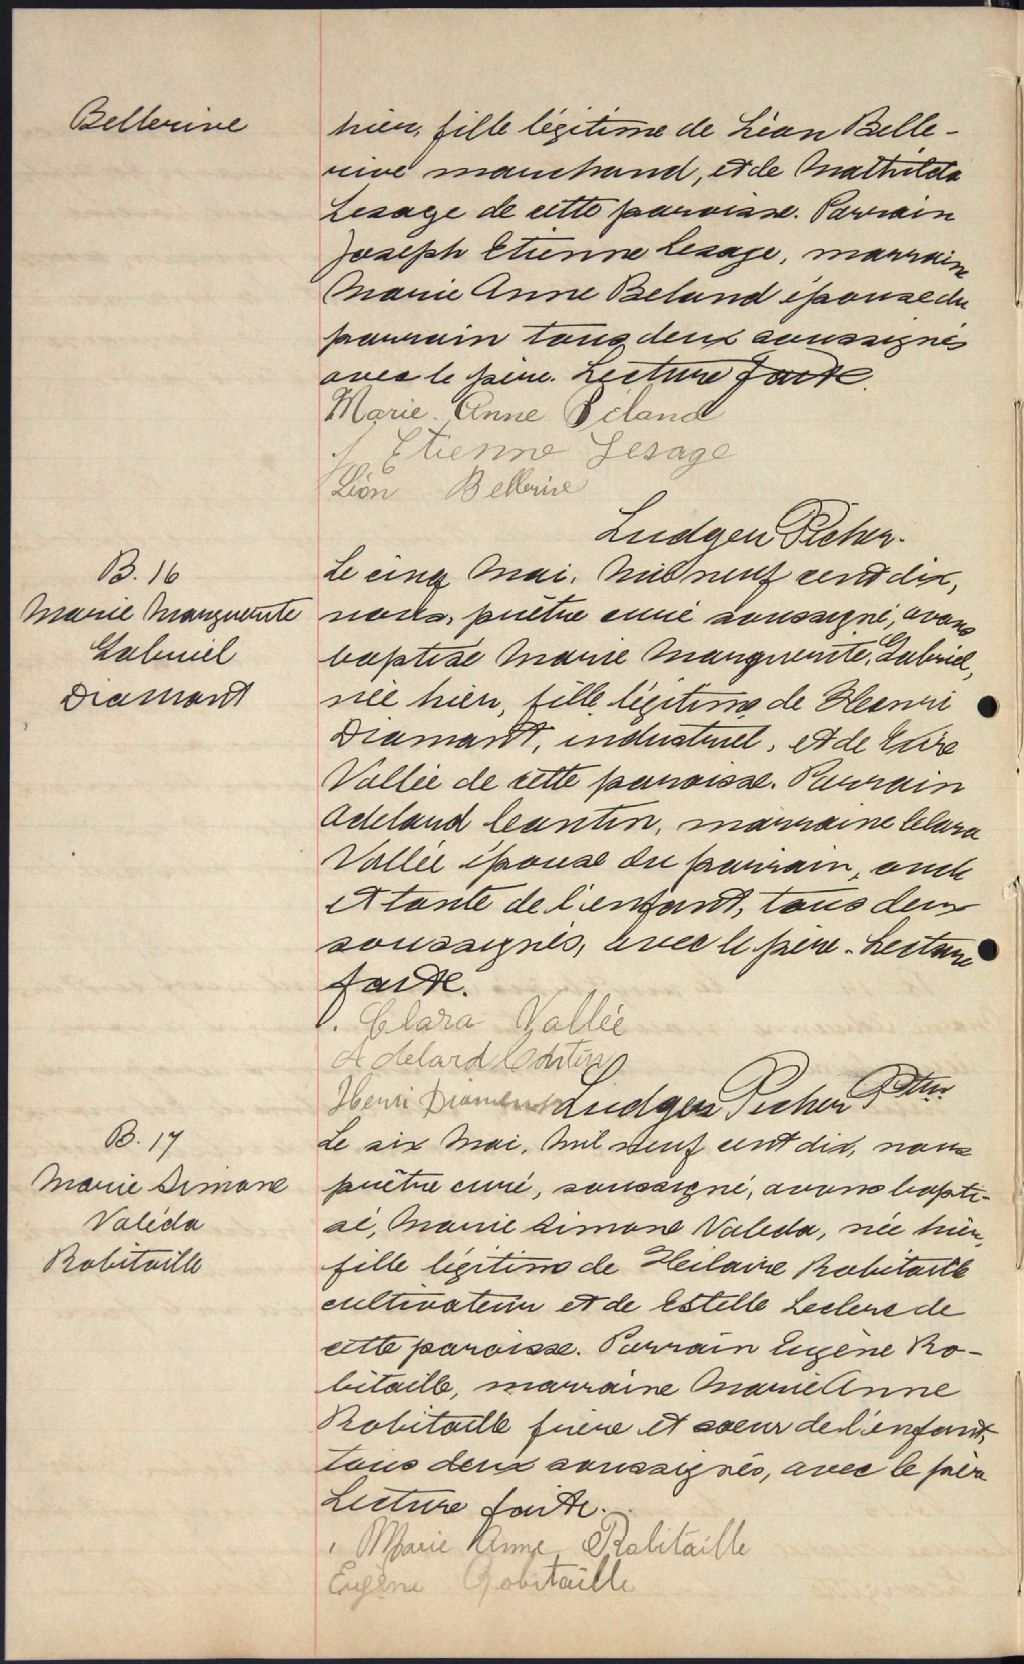 Bellerive
hier, fille légitime de Léon Belle-
rive marchand, et de Mathilda
Lesage de cette paroisse. Parrain
Joseph Etienne Lesage, marraine
Marie Anne Beland épouse du
parrain tous deux soussignés
avec le père. Lecture faite.
Marie Anne Béland
J Etienne Lesage
Léon Bellerive
Ludger Picher.
B. 16
Marie Marguerite
Gabriel
Diamant
Le cinq Mai, Mil neuf cent dix,
nous, prêtre curé soussigné, avons
baptisé Marie Marguerite, Gabriel,
née hier, fille légitime de Henri
Diamant, industriel, et de
Vallée de cette paroisse. Parrain
Adelard Cantin, marraine Clara
Vallée épouse du parrain, oncle
et tante de l'enfant, tous deux
soussignés, avec le père. Lecture
faite.
Clara Vallée
Adelard Cantin
Henri Diamant
Ludger Picher Ptre
B. 17
Marie Simone
Valéda
Robitaille
Le six Mai, Mil neuf cent dix, nous
prêtre curé, soussigné, avons bapti-
sé, Marie Simone Valeda, née hier,
fille légitime de Heilaire Robitaille
cultivateur et de Estelle Leclerc de
cette paroisse. Parrain Eugène Ro-
bitaille, marraine Marie Anne
Robitaille frère et soeur de l'enfant,
tous deux soussignés, avec le père
Lecture faite.
Marie Anne Robitaille
Eugène Robitaille